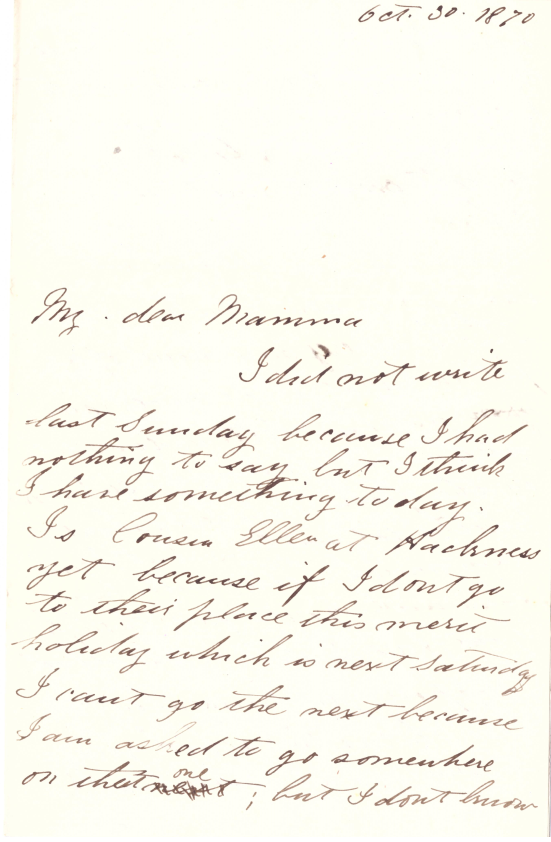 Oct. 30. 1870
My. dear Mamma
I did not write
last Sunday because I had
nothing to say but I think
I have something today.
Is Cousin Ellen at Hackness
yet because if I dont go
to their place this merit
holiday which is next Saturday
I cant go the next because
I am asked to go somewhere
on that one ; but I dont know